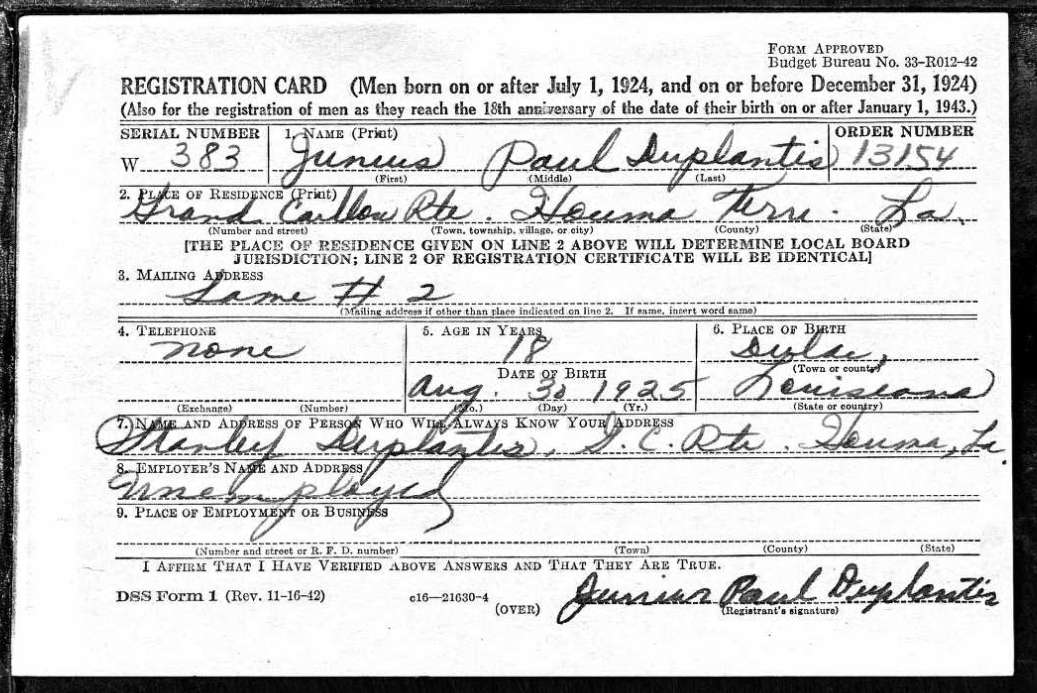 FORM APPROVED
Budget Bureau No. 33-R012-42
REGISTRATION CARD (Men born on or after July 1, 1924, and on or before December 31, 1924)
(Also for the registration of men as they reach the 18th anniversary of the date of their birth on or after January 1, 1943.)
SERIAL NUMBER 1. NAME (Print) ORDER NUMBER
W 383 Junius Paul Duplantis 13154
(First) (Middle) (Last)
2. PLACE OF RESIDENCE (Print)
Grand Caillou Rte. Houma Terre. La.
(Number and street) (Town, township, village, or city) (County) (State)
[THE PLACE OF RESIDENCE GIVEN ON LINE 2 ABOVE WILL DETERMINE LOCAL BOARD
JURISDICTION; LINE 2 OF REGISTRATION CERTIFICATE WILL BE IDENTICAL]
3. MAILING ADDRESS
Same # 2
(Mailing address if other than place indicated on line 2. If same, insert word same)
4. TELEPHONE 5. AGE IN YEARS 6. PLACE OF BIRTH
none 18 Dulac,
DATE OF BIRTH (Town or county)
Aug. 30 1925 Louisiana
(Exchange) (Number) (Mo.) (Day) (Yr.) (State or country)
7. NAME AND ADDRESS OF PERSON WHO WILL ALWAYS KNOW YOUR ADDRESS
Stanley Duplantis, G. C. Rte. Houma, La.
8. EMPLOYER'S NAME AND ADDRESS
Unemployed
9. PLACE OF EMPLOYMENT OR BUSINESS
(Number and street or R. F. D. number) (Town) (County) (State)
I AFFIRM THAT I HAVE VERIFIED ABOVE ANSWERS AND THAT THEY ARE TRUE.
DSS Form 1 (Rev. 11-16-42) c16—21630-4 Junius Paul Duplantis
(OVER) (Registrant's signature)